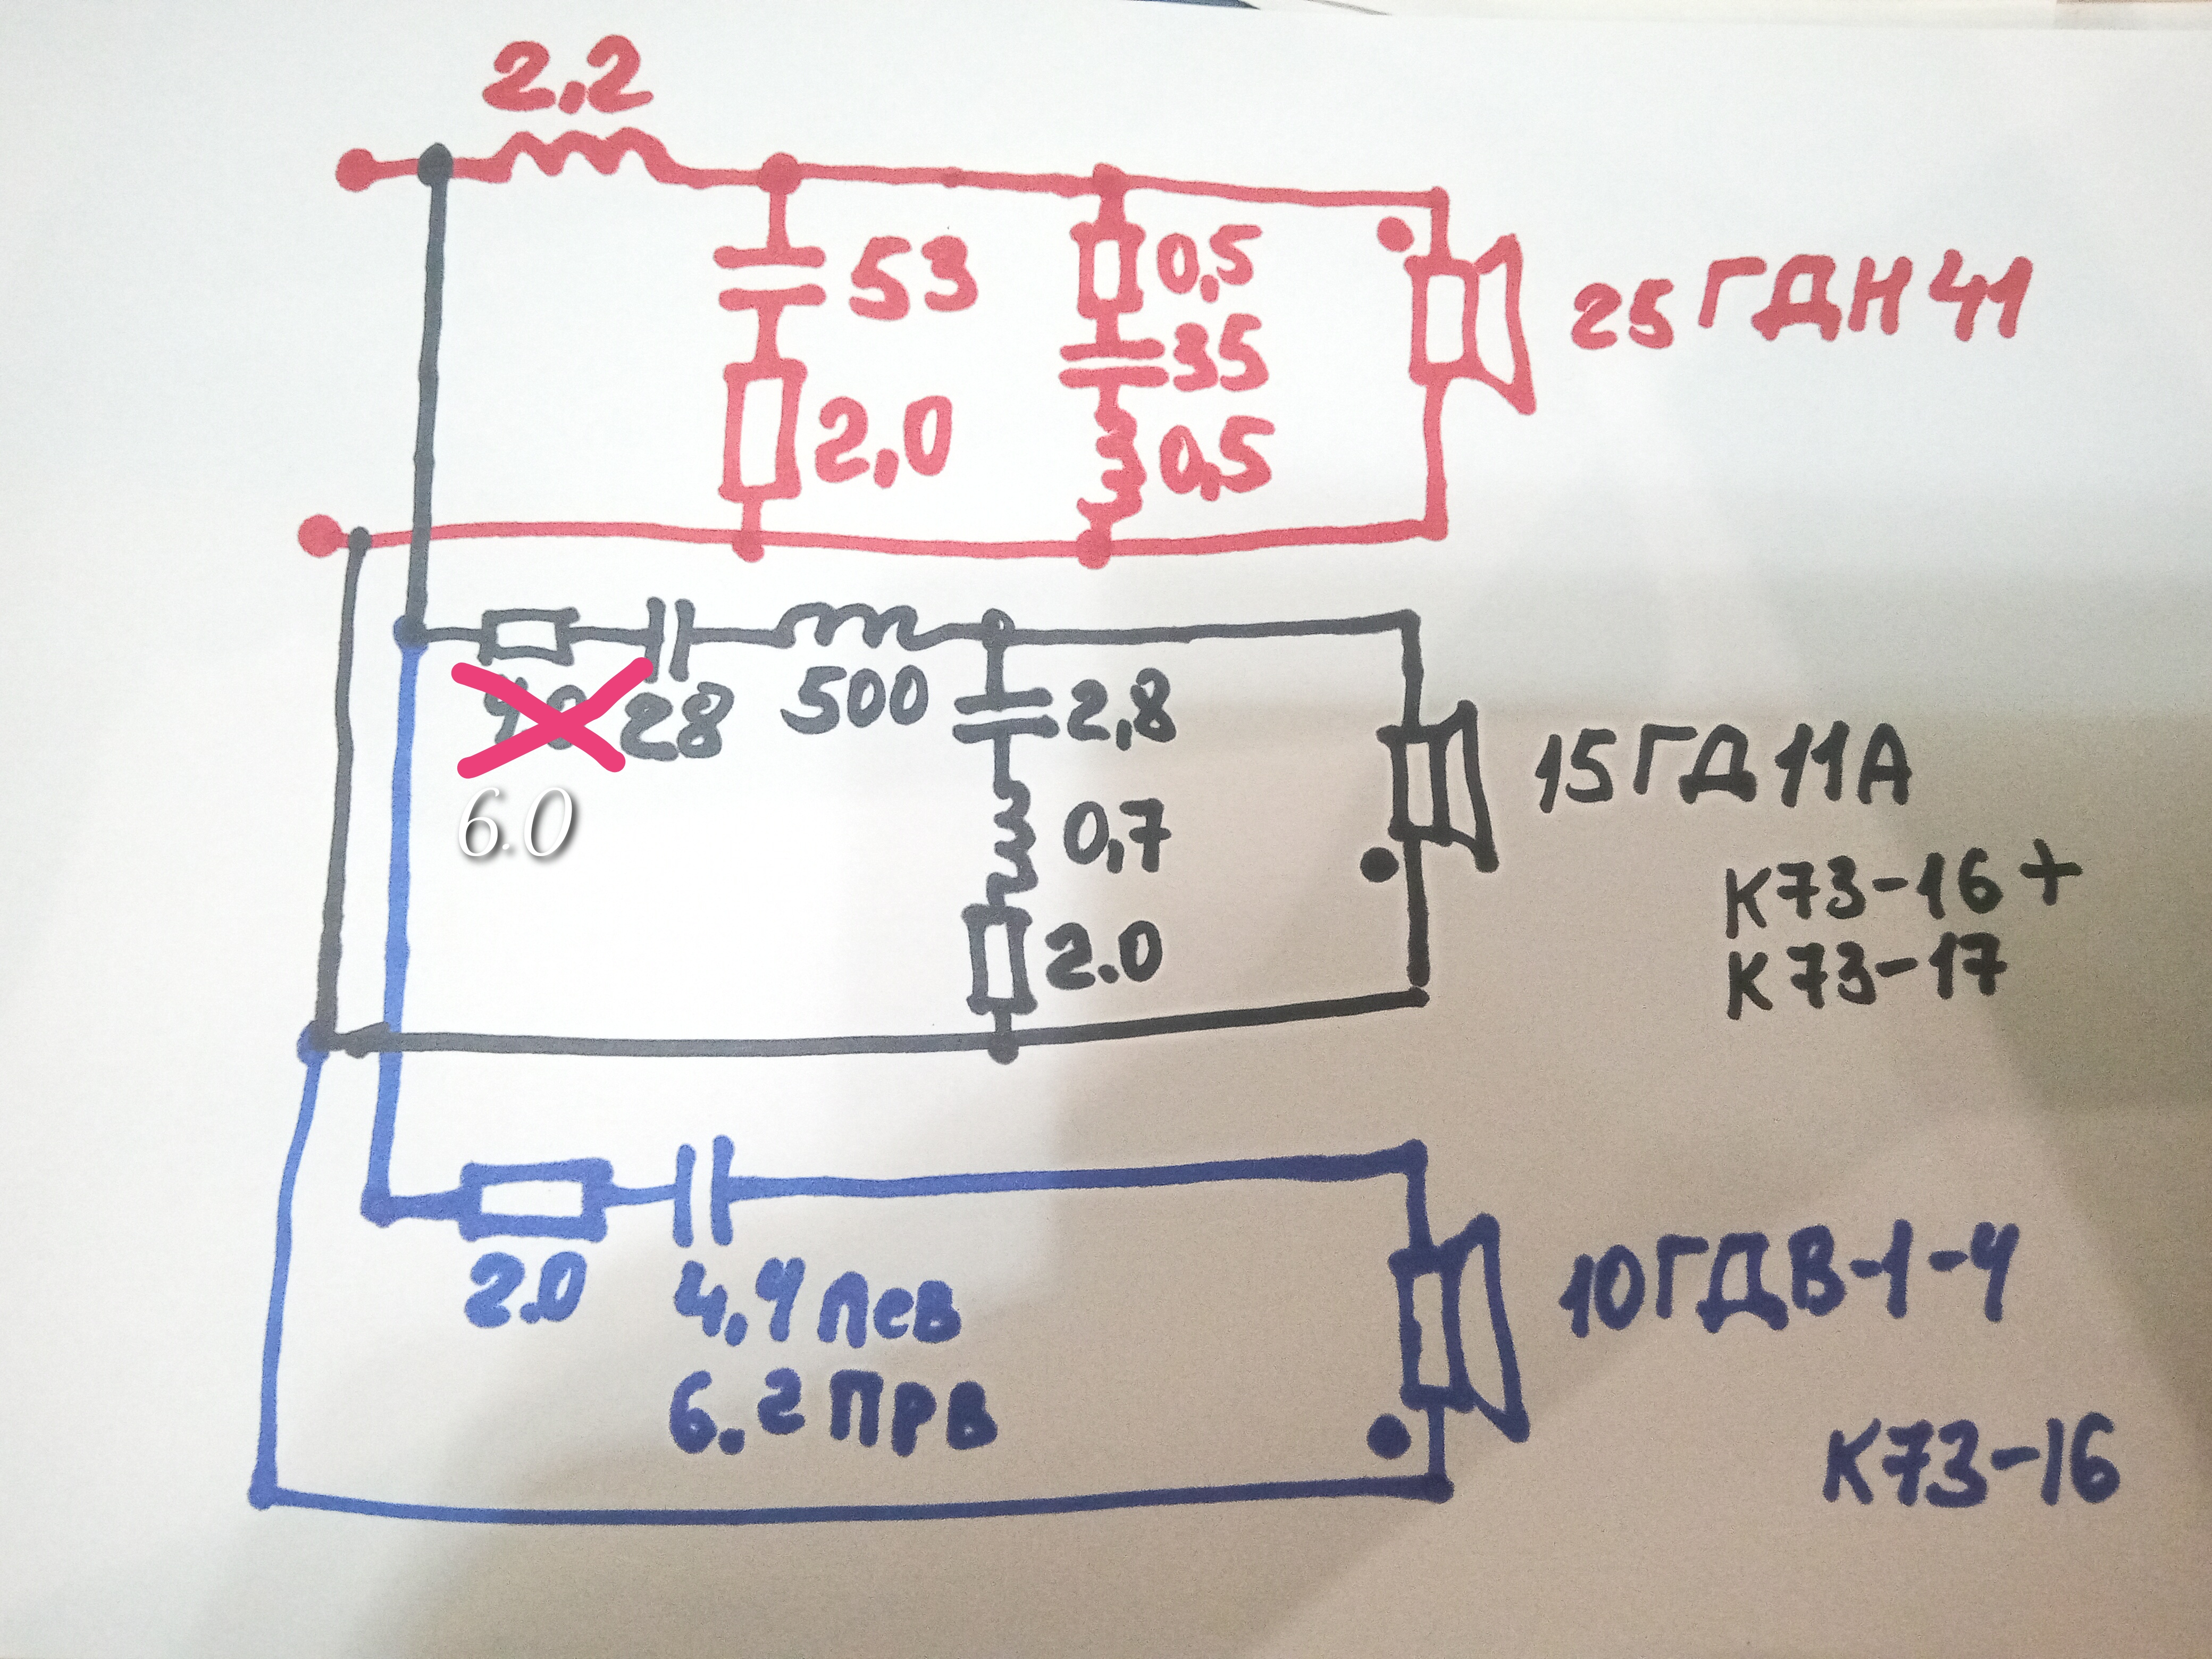 2,2
53
2,0
0,5
35
0,5
25 ГДН 41
4.0
28
500
6.0
2,8
0,7
2.0
15 ГД 11А
К73-16 +
К73-17
2.0
4,4 лев
6.2 Прв
10ГДВ-1-4
К73-16